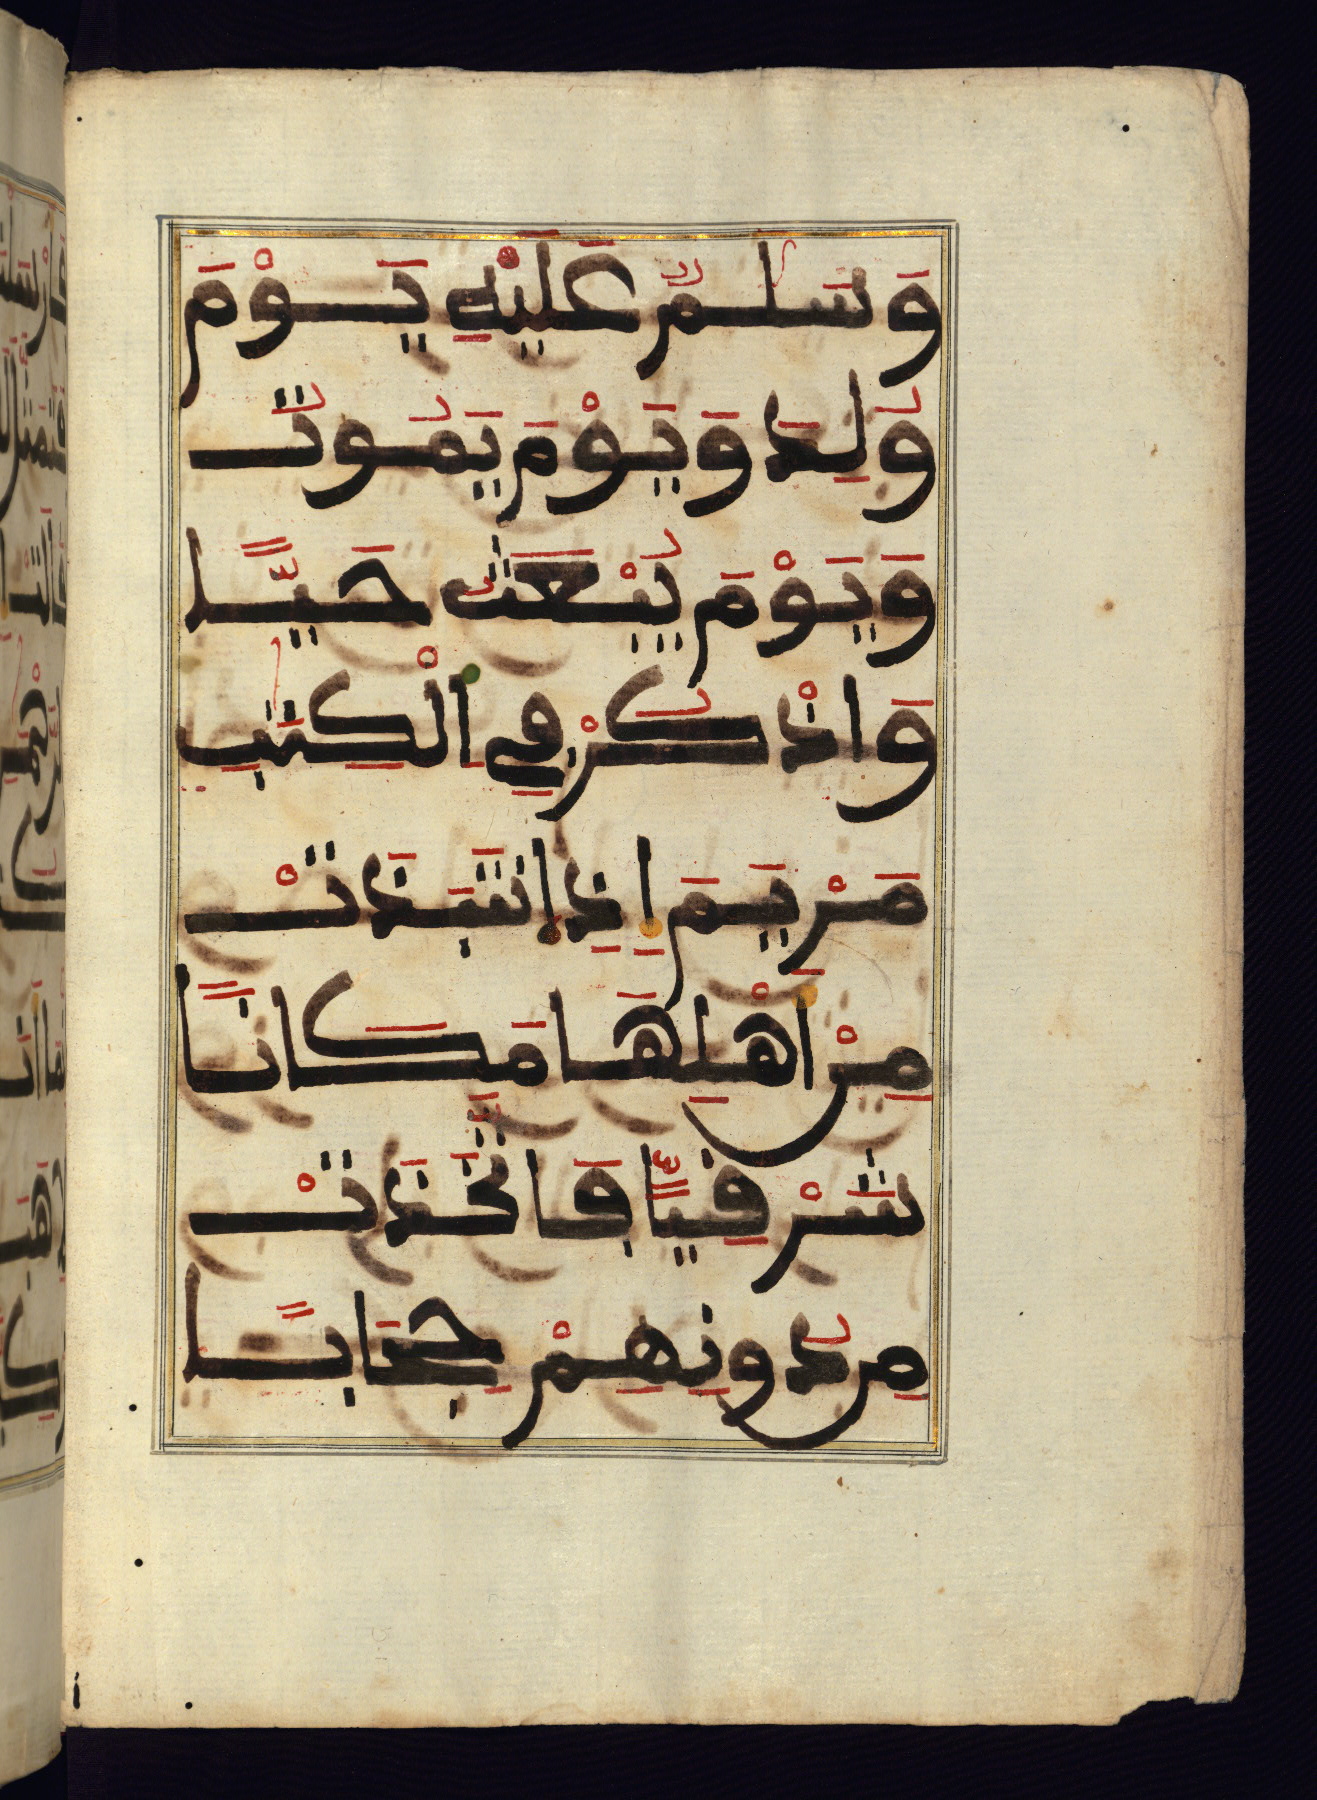 وَسَلَٰمٌ عَلَيْهِ يَوْمَ
وُلِدَ وَيَوْمَ يَمُوتُ
وَيَوْمَ يُبْعَثُ حَيًّا
وَاذْكُرْ فِي الْكِتَٰبِ
مَرْيَمَ إِذِ انتَبَذَتْ
مِنْ أَهْلِهَا مَكَانًا
شَرْقِيًّا فَاتَّخَذَتْ
مِن دُونِهِمْ حِجَابًا